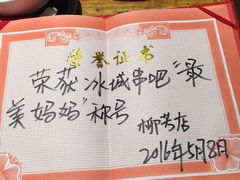 荣誉证书
荣获"冰城串吧"最
美妈妈"称号
柳营店
2016年5月8日